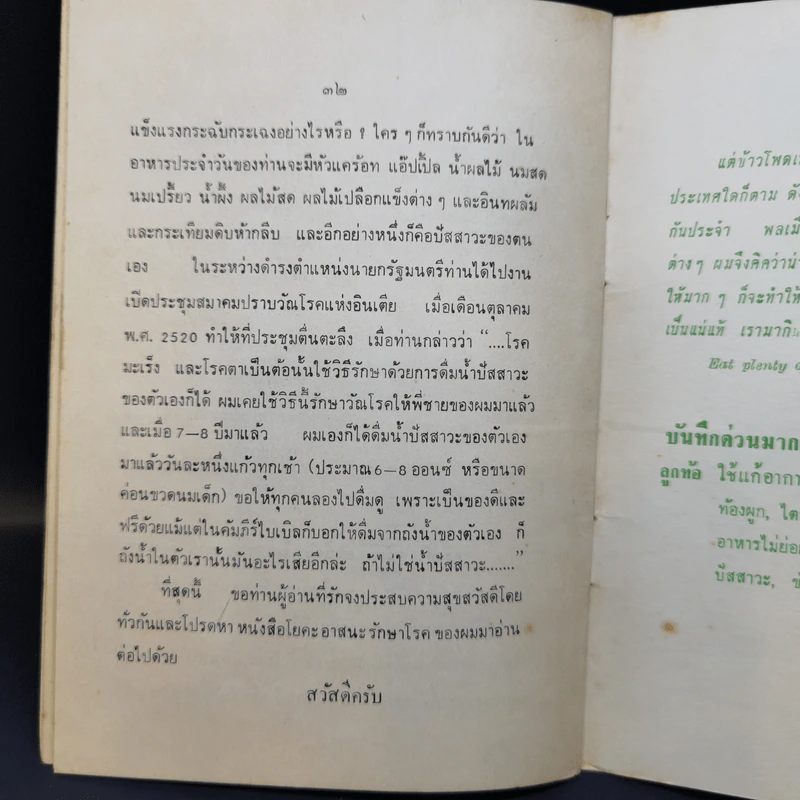 ๓๒
แข็งแรงกระฉับกระเฉงอย่างไรหรือ ? ใคร ๆ ก็ทราบกันดีว่า ใน
อาหารประจำวันของท่านจะมีหัวแคร้อท แอ๊ปเปิ้ล น้ำผลไม้ นมสด
นมเปรี้ยว น้ำผึ้ง ผลไม้สด ผลไม้เปลือกแข็งต่าง ๆ และอินทผลัม
และกระเทียมดิบห้ากลีบ และอีกอย่างหนึ่งก็คือปัสสาวะของตน
เอง ในระหว่างดำรงตำแหน่งนายกรัฐมนตรีท่านได้ไปงาน
เปิดประชุมสมาคมปราบวัณโรคแห่งอินเดีย เมื่อเดือนตุลาคม
พ.ศ. 2520 ทำให้ที่ประชุมตื่นตะลึง เมื่อท่านกล่าวว่า “....โรค
มะเร็ง และโรคตาเป็นต้อนั้นใช้วิธีรักษาด้วยการดื่มน้ำปัสสาวะ
ของตัวเองก็ได้ ผมเคยใช้วิธีนี้รักษาวัณโรคให้พี่ชายของผมมาแล้ว
และเมื่อ 7—8 ปีมาแล้ว ผมเองก็ได้ดื่มน้ำปัสสาวะของตัวเอง
มาแล้ววันละหนึ่งแก้วทุกเช้า (ประมาณ 6—8 ออนซ์ หรือขนาด
ค่อนขวดนมเด็ก) ขอให้ทุกคนลองไปดื่มดู เพราะเป็นของดีและ
ฟรีด้วยแม้แต่ในคัมภีร์ไบเบิลก็บอกให้ดื่มจากถังน้ำของตัวเอง ก็
ถังน้ำในตัวเรานั้นมันอะไรเสียอีกล่ะ ถ้าไม่ใช่น้ำปัสสาวะ.......”
ที่สุดนี้ ขอท่านผู้อ่านที่รักจงประสบความสุขสวัสดีโดย
ทั่วกันและโปรดหา หนังสือโยคะอาสนะรักษาโรค ของผมมาอ่าน
ต่อไปด้วย
สวัสดีครับ
แต่ข้าวโพด
ประเทศใดก็ตาม
กันประจำ พลเมื
ต่างๆ ผมจึงคิดว่า
ให้มาก ๆ ก็จะทำให้
เป็นแน่แท้ เรามากิ
Eat plenty
บันทึกด่วนมาก
ลูกท้อ ใช้แก้อากา
ท้องผูก, ไต
อาหารไม่ย่อย
ปัสสาวะ,